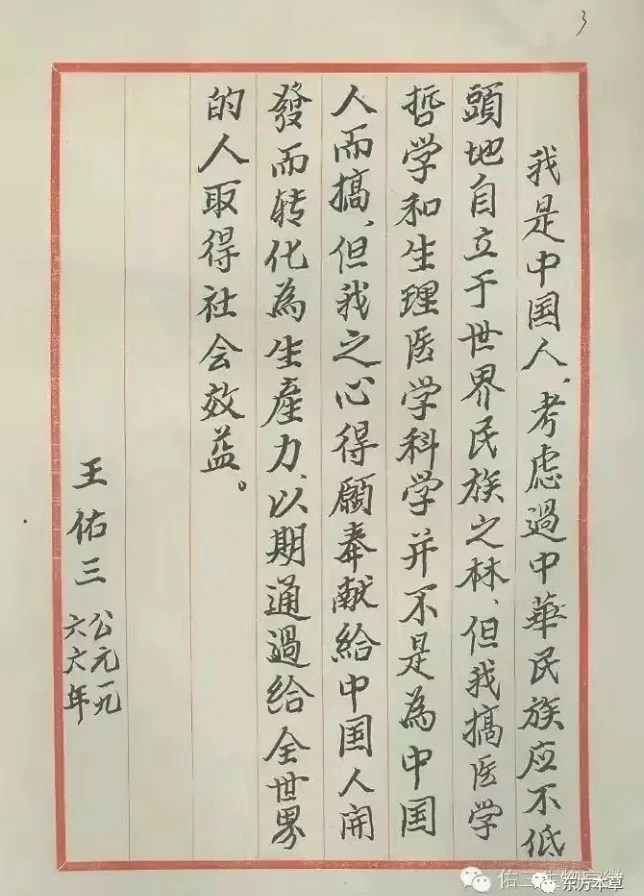 3
我是中国人、考虑過中華民族应不低
頭地自立于世界民族之林、但我搞医学
哲学和生理医学科学并不是為中国
人而搞、但我之心得願奉献給中国人開
發而转化為生產力、以期通過给全世界
的人取得社会效益。
王佑三
公元一九
六六年
东方本草